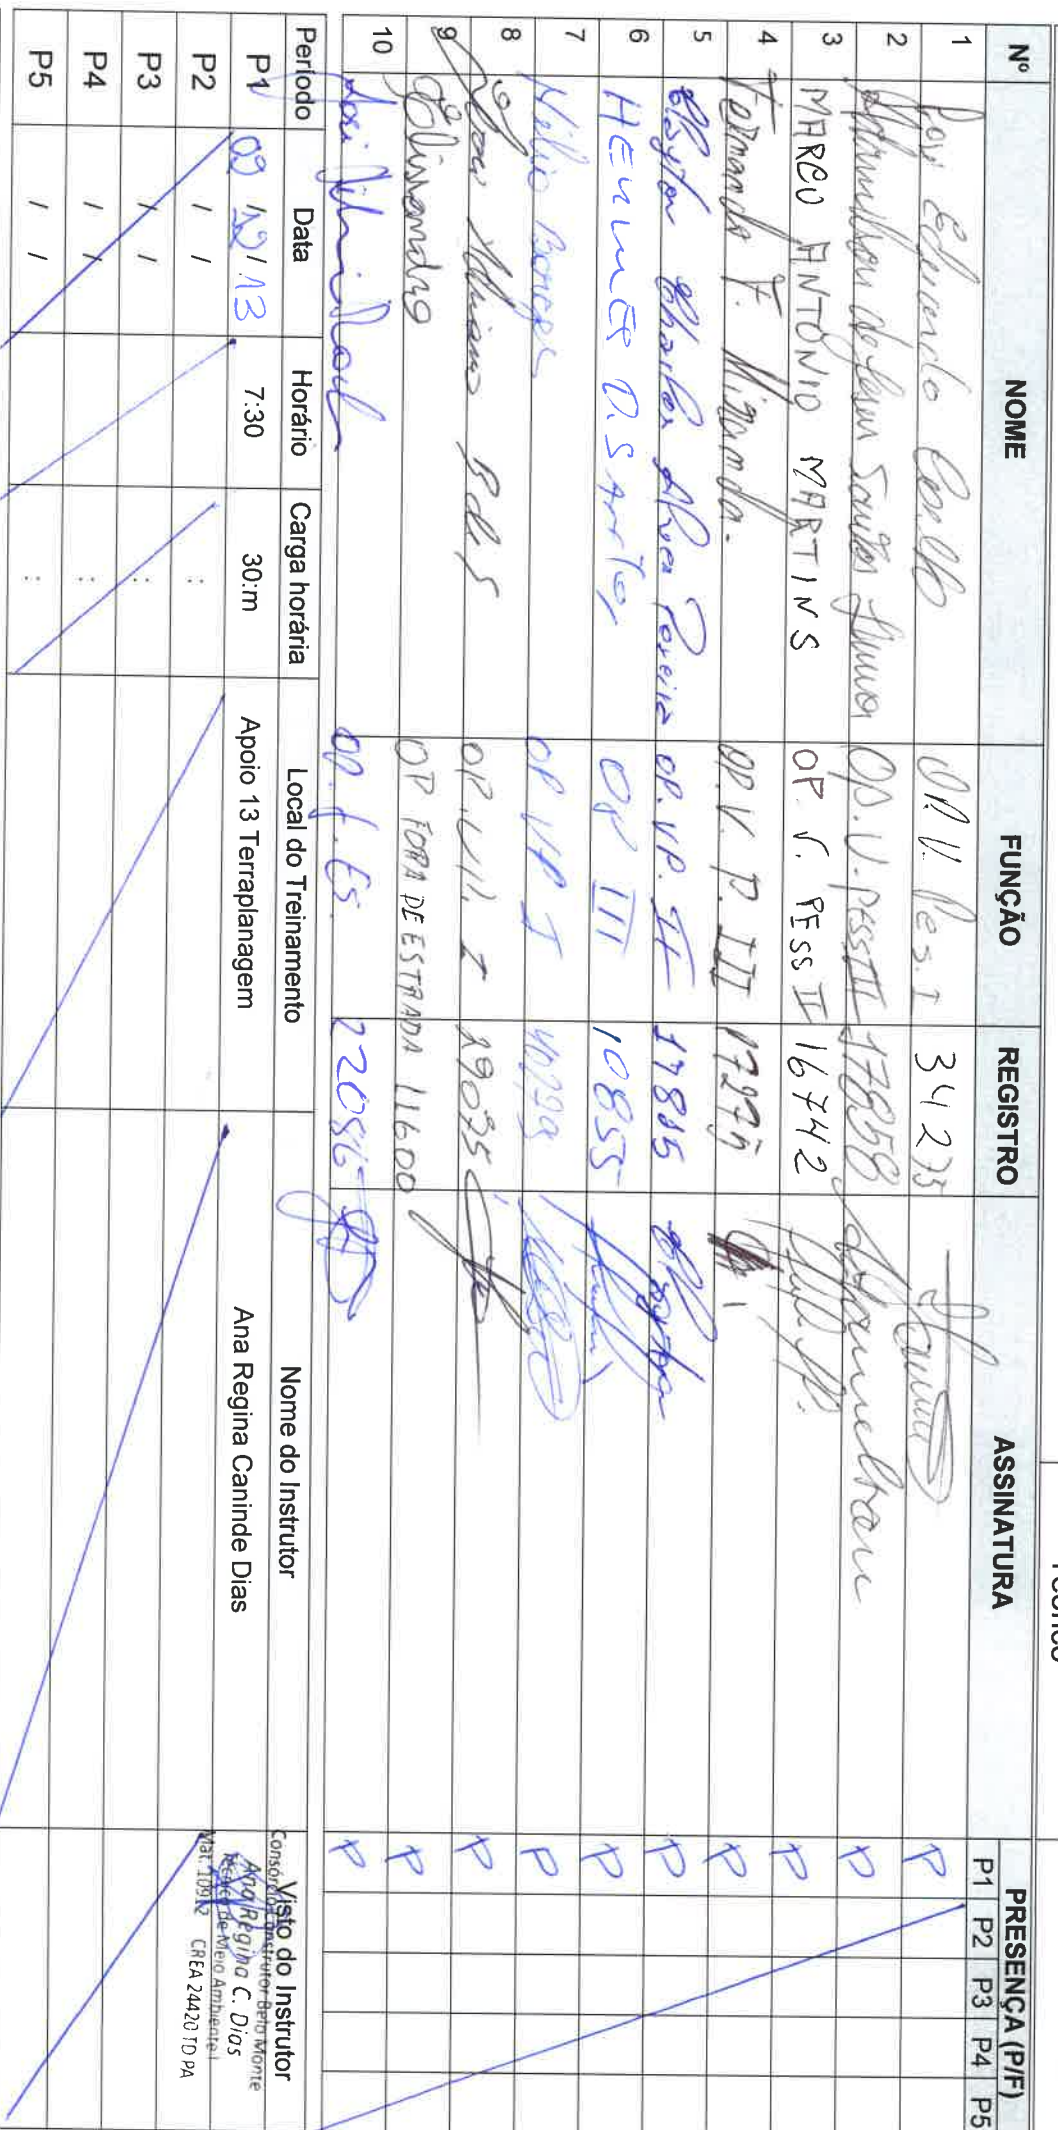 Nº NOME FUNÇÃO REGISTRO ASSINATURA PRESENÇA (P/F)
P1 P2 P3 P4 P5
1 José Eduardo OP. V. Pes. I 34273 P
2 de Jesus Santos Junior OP. V. PESS III 17858 P
3 MARCO ANTÔNIO MARTINS OP. V. PESS II 16742 P
4 Fernando F. Miranda. OP. V. P. III 17275 P
5 Clayton Charles Alves Pereira OP. VP. II 17835 Clayton P
6 HERMES D. SANTOS OP III 10855 P
7 Hélio Borges OP VP I 40299 P
8 Adriano OP. I 29095 P
9 Elissandro OP FORA DE ESTRADA 11600 P
10 José OP. f. Es. 22086 P
Período Data Horário Carga horária Local do Treinamento Nome do Instrutor Visto do Instrutor
P1 09 / 12 / 13 7:30 30:m Apoio 13 Terraplanagem Ana Regina Caninde Dias
Consórcio Construtor Belo Monte
Ana Regina C. Dias
Técnico de Meio Ambiente I
Mat. 10912 CREA 24420 TD PA
P2 / / :
P3 / / :
P4 / / :
P5 / / :